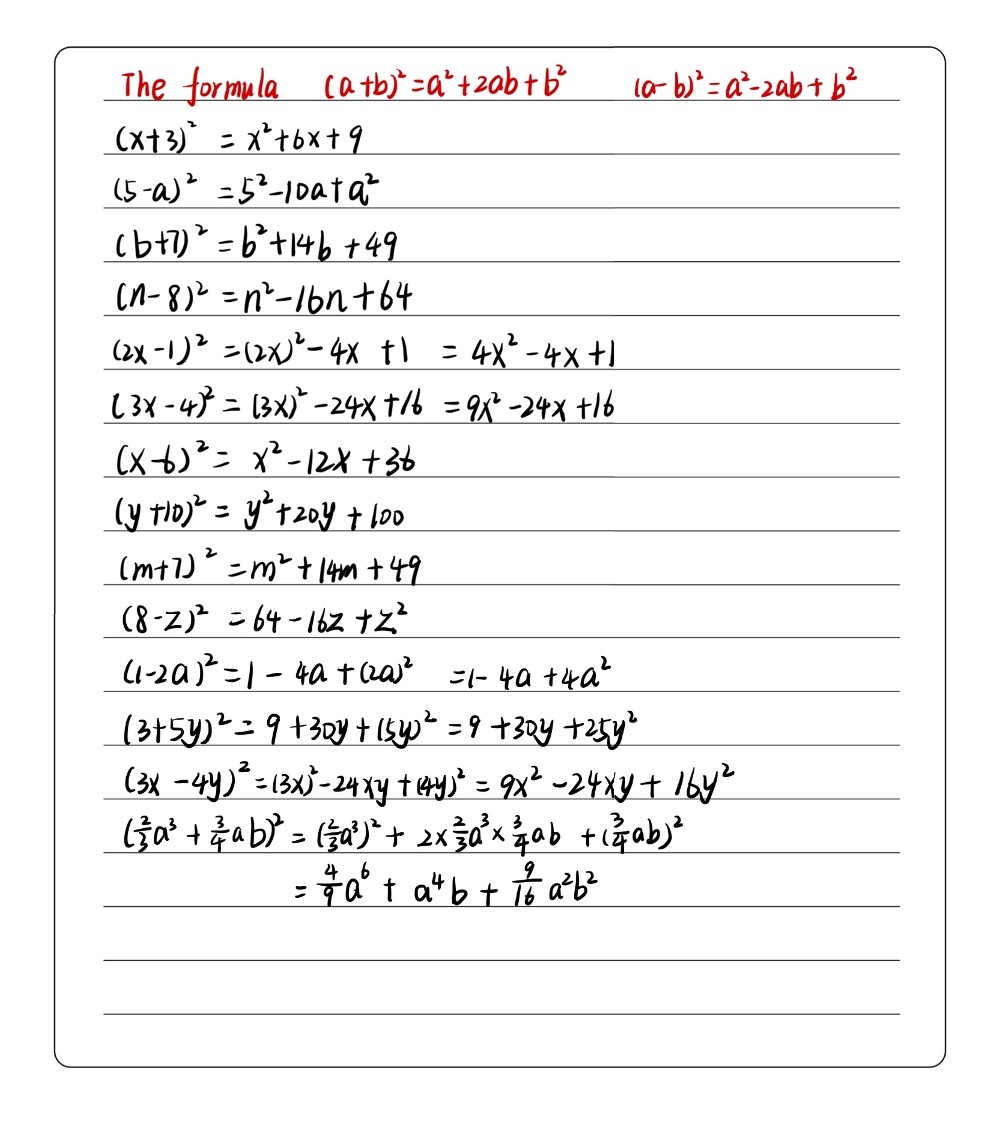 The formula (a+b)²=a²+2ab+b² (a-b)²=a²-2ab+b²
(x+3)² = x²+6x+9
(5-a)² =5²-10a+a²
(b+7)² =b²+14b+49
(n-8)² =n²-16n+64
(2x-1)² =(2x)²-4x+1 = 4x²-4x+1
(3x-4)² = (3x)²-24x+16 =9x²-24x+16
(x-6)² = x²-12x+36
(y+10)² = y²+20y+100
(m+7)² =m²+14m+49
(8-z)² =64-16z+z²
(1-2a)² =1-4a+(2a)² =1-4a+4a²
(3+5y)² = 9+30y+(5y)² = 9+30y+25y²
(3x-4y)² =(3x)²-24xy+(4y)² = 9x²-24xy+16y²
(2/3a³ + 3/4ab)² = (2/3a³)² + 2×2/3a³×3/4ab + (3/4ab)²
= 4/9a⁶ + a⁴b + 9/16a²b²